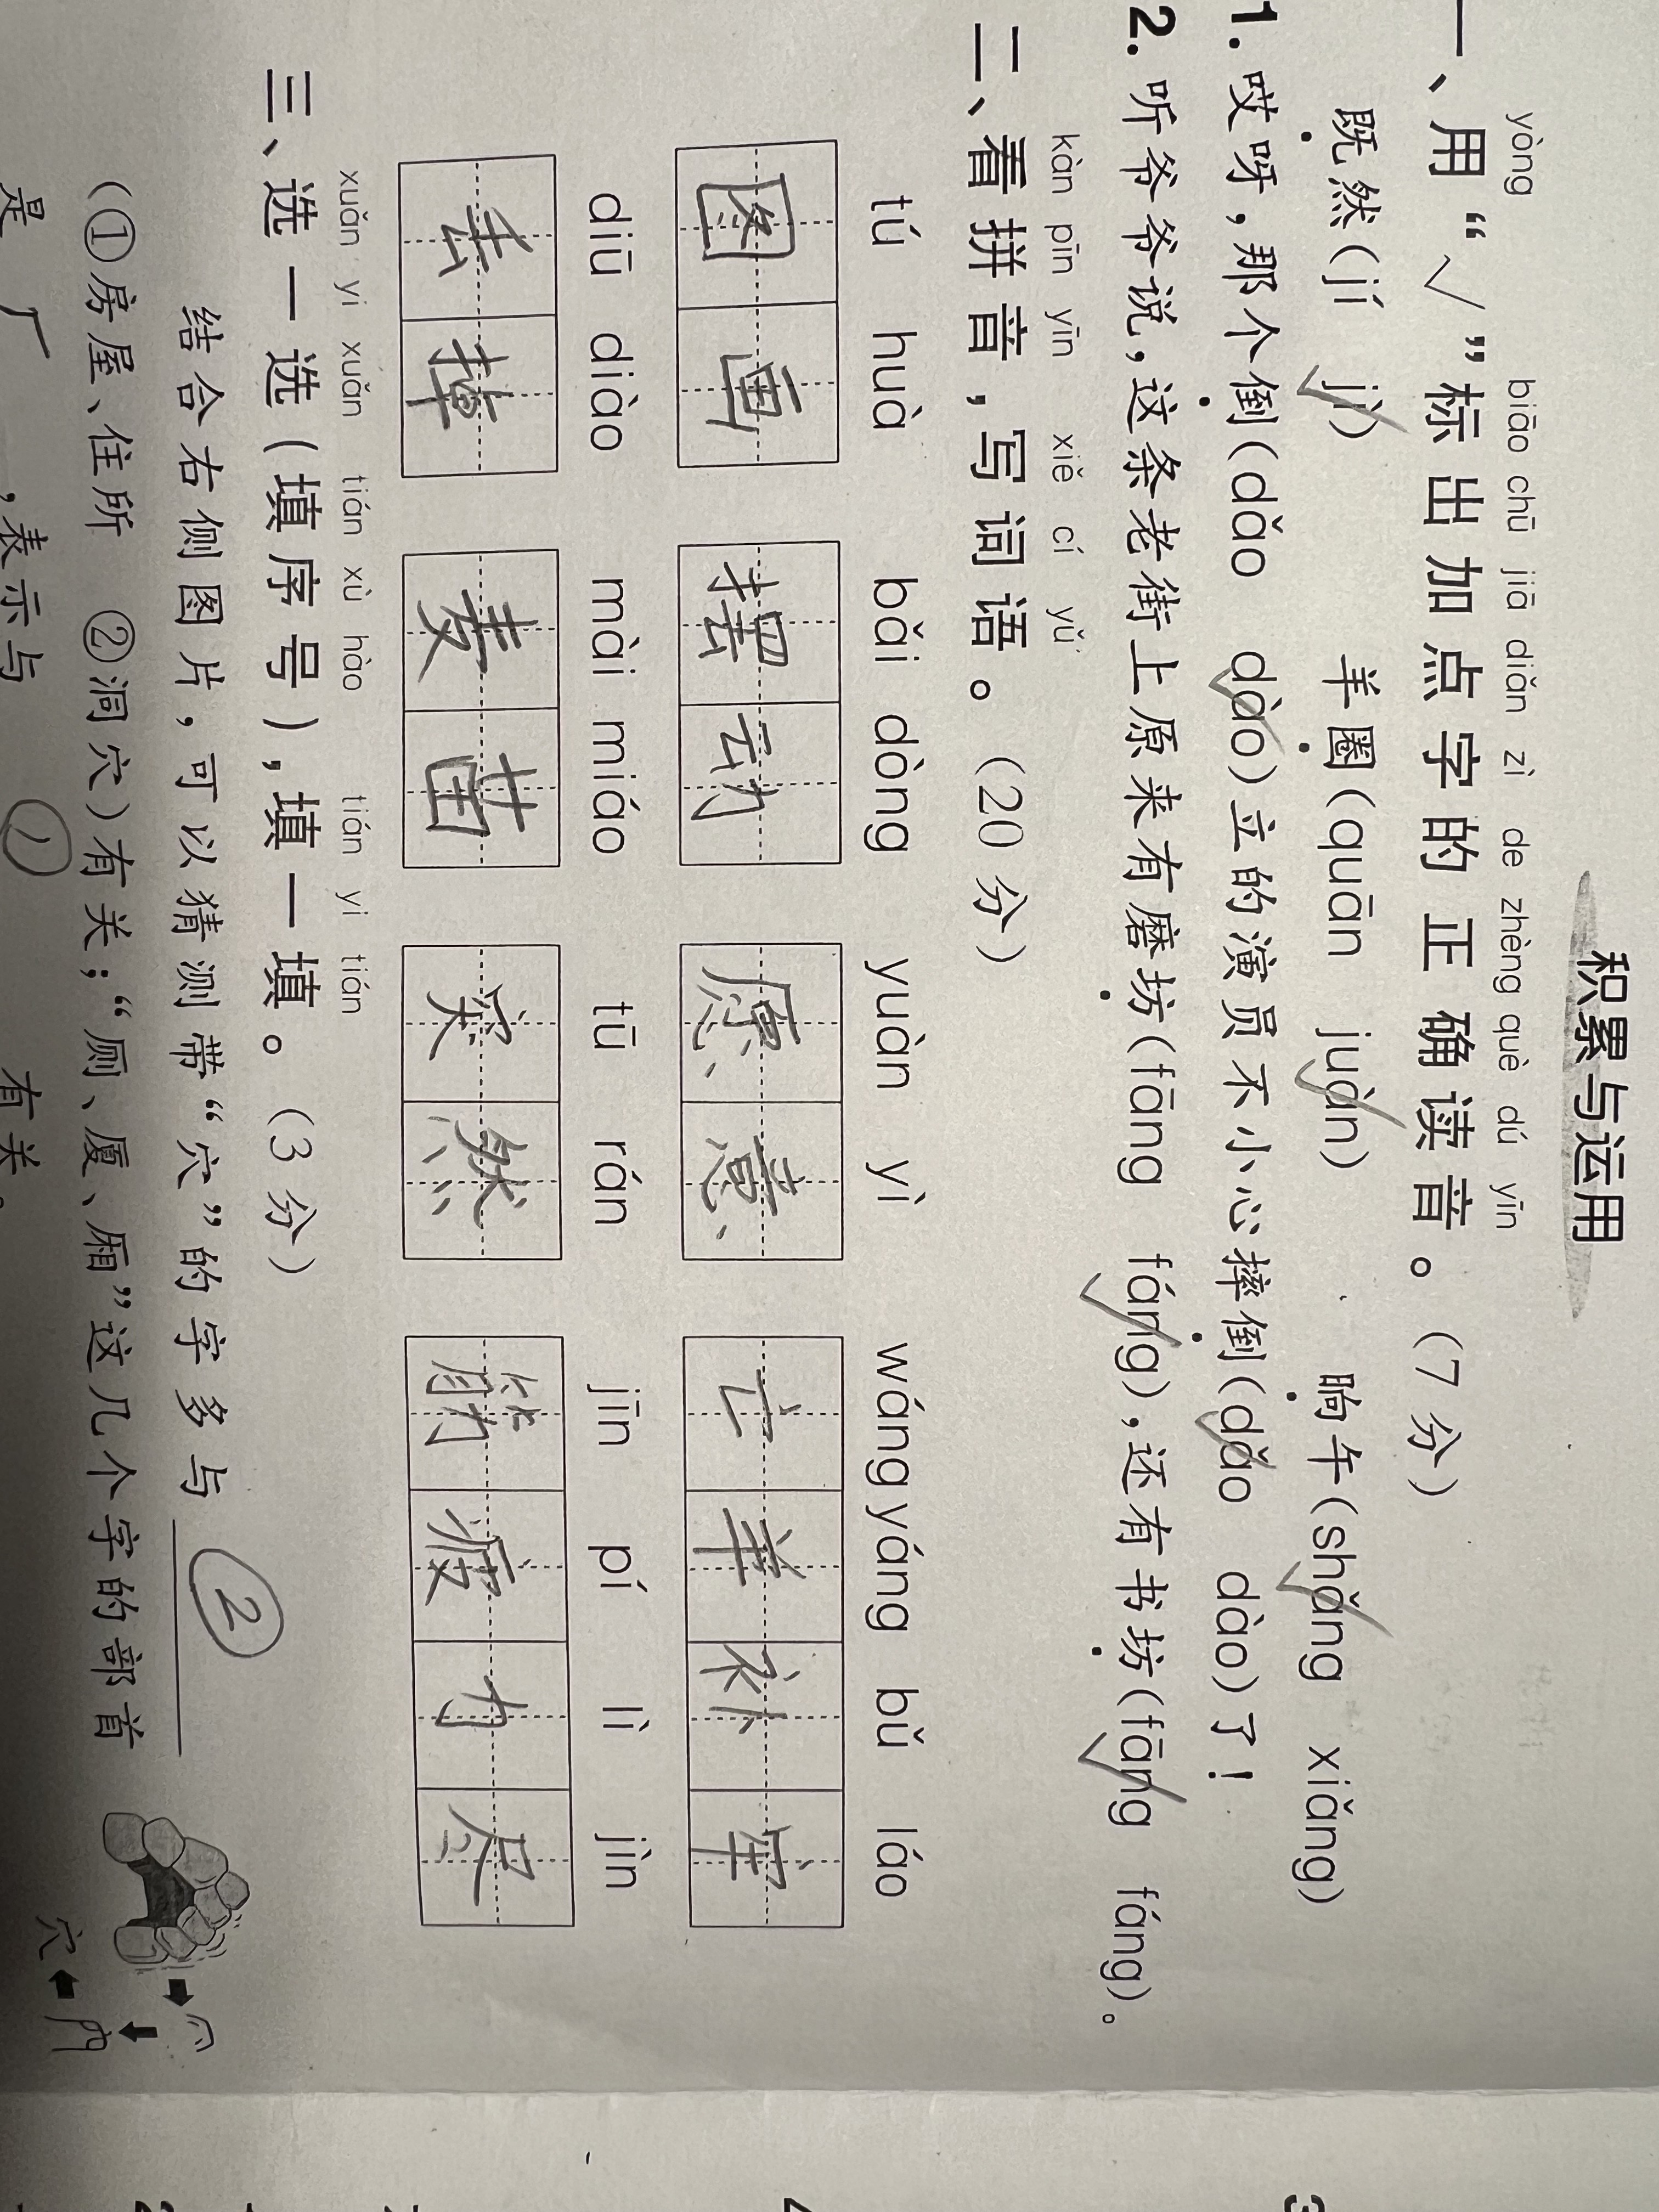 积累与运用
yòng biāo chū jiā diǎn zì de zhèng què dú yīn
一、用“√”标出加点字的正确读音。(7分)
既然(jí jì) 羊圈(quān juàn) 晌午(shǎng xiǎng)
1. 哎呀，那个倒(dǎo dào)立的演员不小心摔倒(dǎo dào)了！
2. 听爷爷说，这条老街上原来有磨坊(fāng fáng)，还有书坊(fāng fáng)。
kàn pīn yīn xiě cí yǔ
二、看拼音，写词语。(20分)
tú huà bǎi dòng yuàn yì wáng yáng bǔ láo
图画 摆动 愿意 亡羊补牢
diū diào mài miáo tū rán jīn pí lì jìn
丢掉 麦苗 突然 筋疲力尽
xuǎn yi xuǎn tián xù hào tián yi tián
三、选一选(填序号)，填一填。(3分)
结合右侧图片，可以猜测带“穴”的字多与 ②
(①房屋、住所 ②洞穴)有关；“厕、厦、厢”这几个字的部首
是 厂 ，表示与 ① 有关。
穴